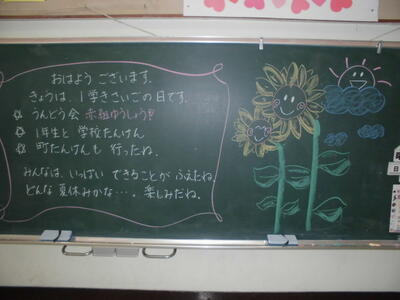 おはよう ございます。
きょうは、1学きさいごの日です。
うんどう会 赤組ゆうしょう!!
1年生と 学校たんけん
町たんけんも 行ったね。
みんなは、いっぱい できることが ふえたね。
どんな 夏休みかな…。楽しみだね。